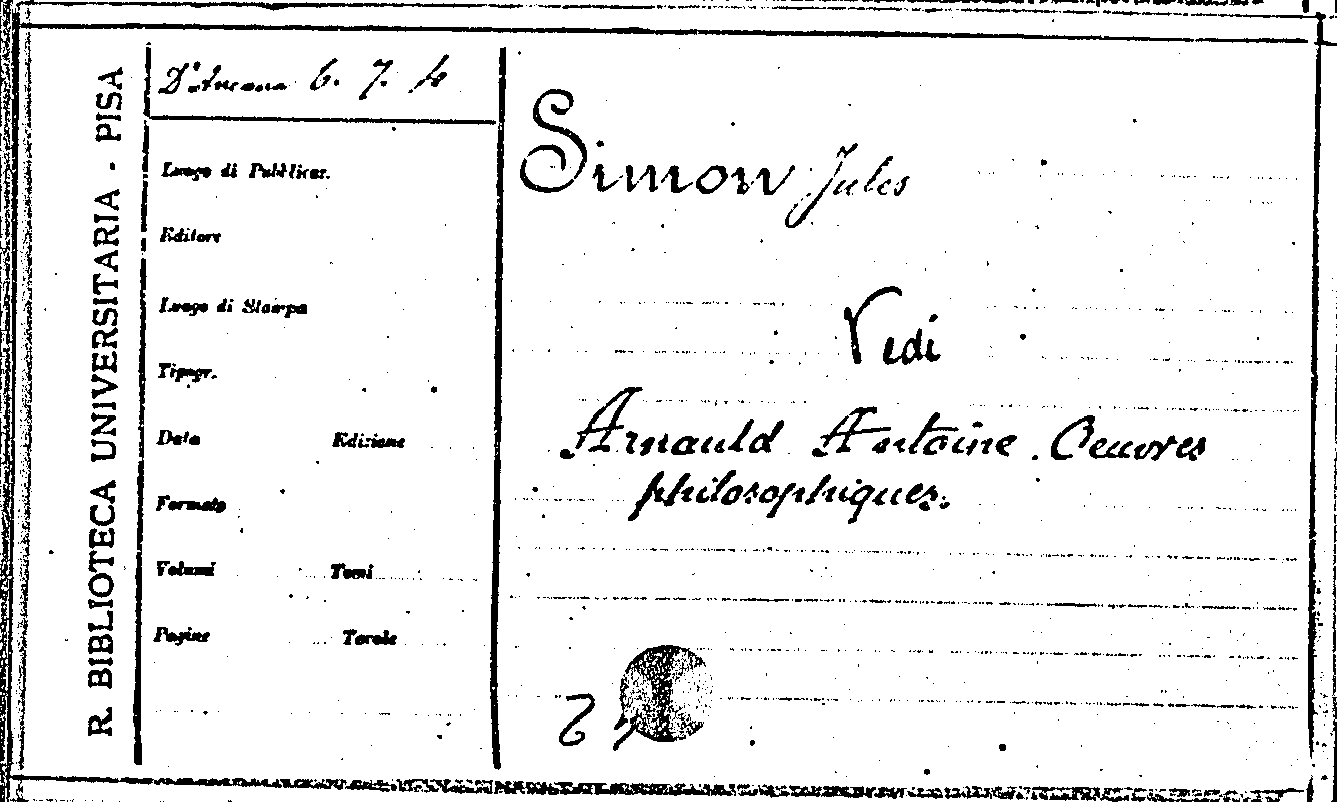 R. BIBLIOTECA UNIVERSITARIA - PISA
D'Ancona 6. 7. 4
Luogo di Pubblicaz.
Editore
Luogo di Stampa
Tipogr.
Data Edizione
Formato
Volumi Tomi
Pagine Tavole
Simon Jules
Vedi
Arnauld Antoine. Oeuvres
philosophiques.